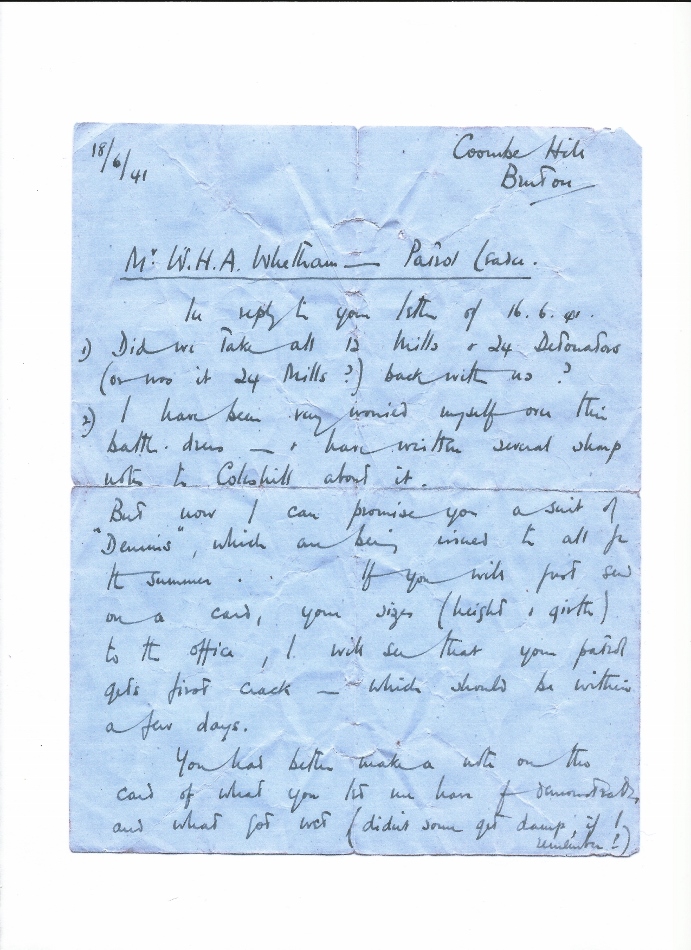 18/6/41
Coombe Hill
Bruton
Mr W.H.A. Whetham — Patrol Leader.
In reply to your letter of 16.6.41.
1) Did we take all 12 Mills & 24 Detonators
(or was it 24 Mills?) back with us?
2) I have been very worried myself over this
battle-dress — & have written several sharp
notes to Coleshill about it.
But now I can promise you a suit of
"Denims", which are being issued to all for
the summer . . If you will just send
on a card, your sizes (height & girth)
to the office, I will see that your patrol
gets first crack — which should be within
a few days.
You had better make a note on the
card of what you let me have for demonstration
and what got wet (didn't some get damp, if I
remember?)